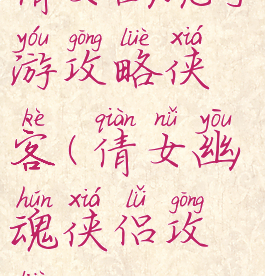 yóu gōng lüè xiá
游攻略侠
kè qiàn nǚ yōu
客(倩女幽
hún xiá lǚ gōng
魂侠侣攻